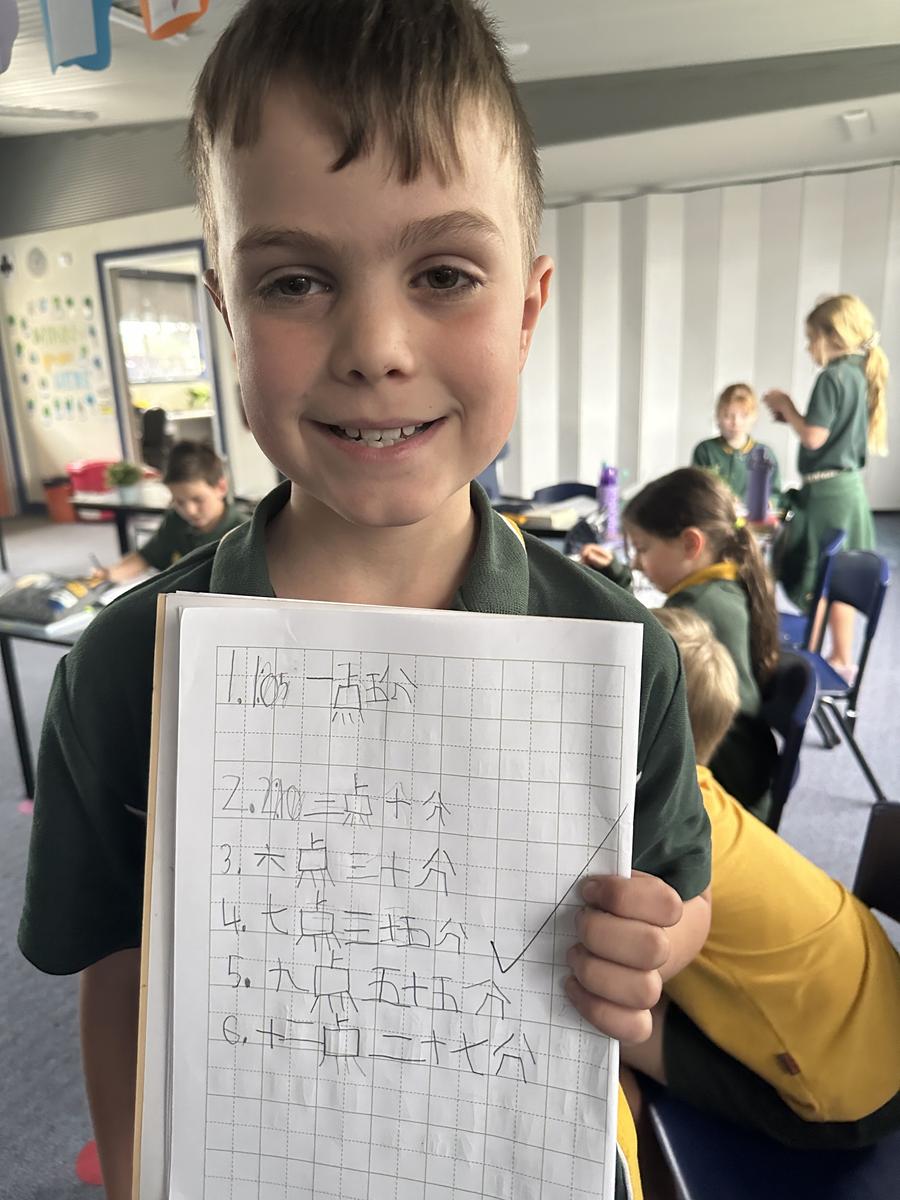 1. 1:05 一点五分
2. 2:10 二点十分
3. 六点三十分
4. 七点三十五分
5. 九点五十五分
6. 十一点二十七分